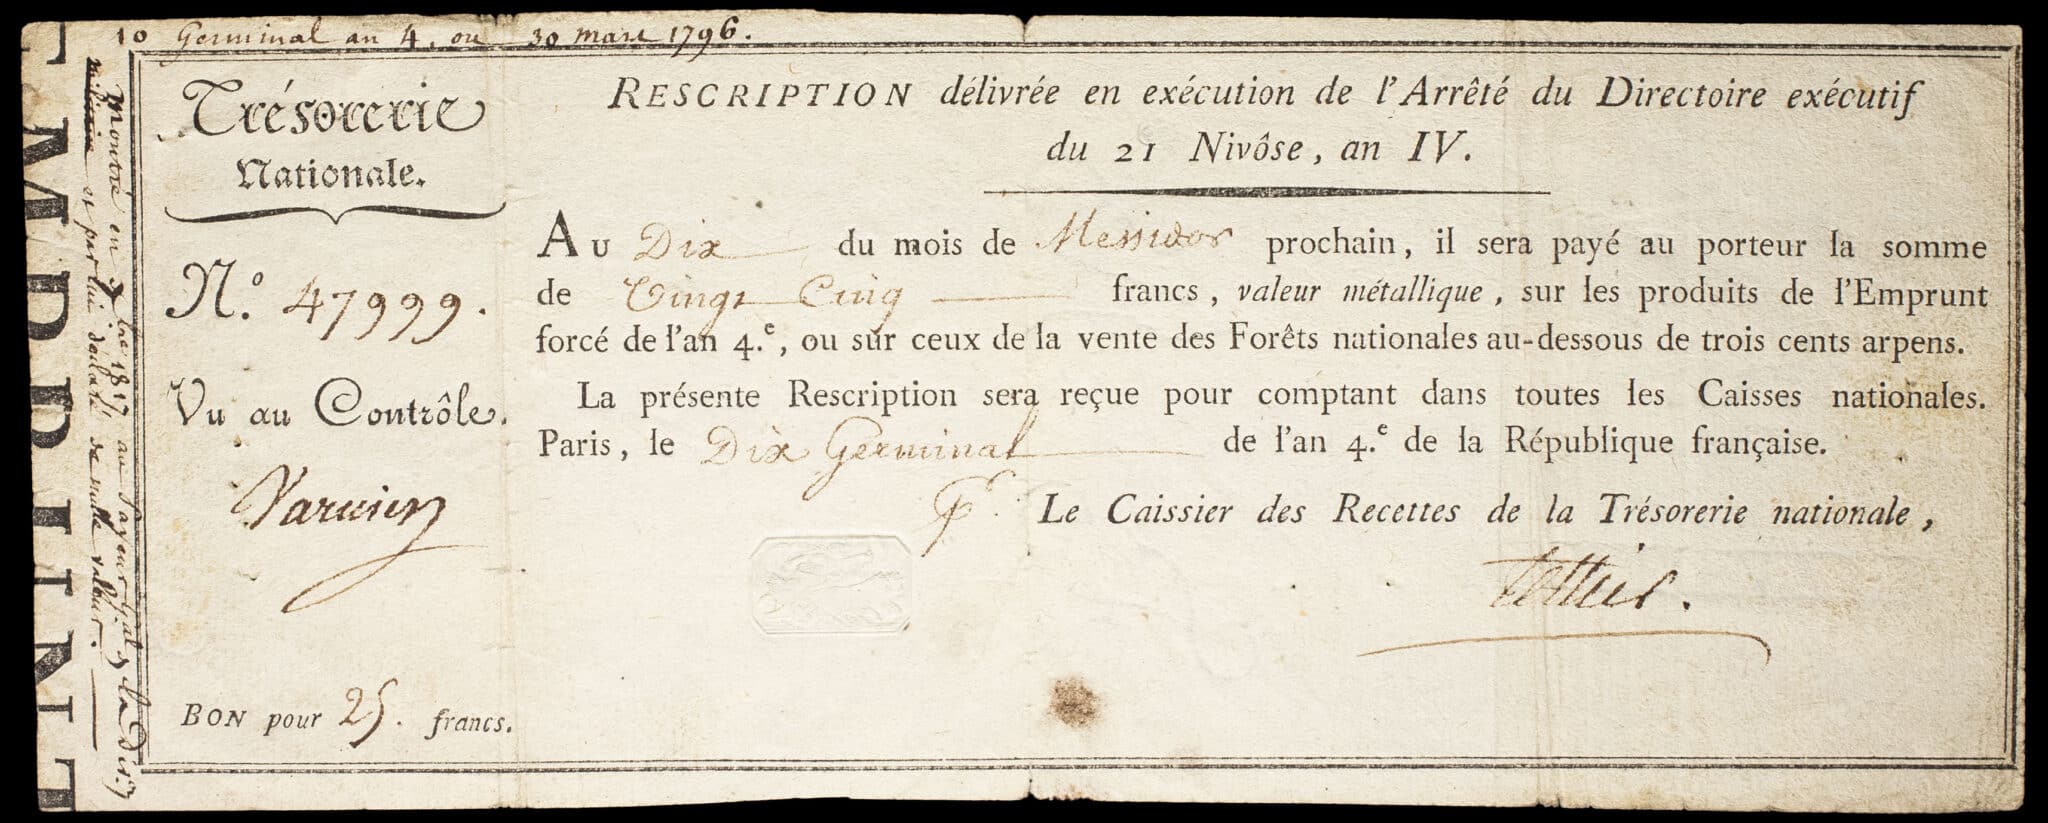 10 Germinal an 4, ou 30 mars 1796.
Trésorerie
Nationale.
N.º 47999.
Vu au Contrôle.
BON pour 25. francs.
RESCRIPTION délivrée en exécution de l'Arrêté du Directoire exécutif
du 21 Nivôse, an IV.
AU Dix du mois de Messidor prochain, il sera payé au porteur la somme
de Vingt Cinq francs, valeur métallique, sur les produits de l'Emprunt
forcé de l'an 4.e, ou sur ceux de la vente des Forêts nationales au-dessous de trois cents arpens.
La présente Rescription sera reçue pour comptant dans toutes les Caisses nationales.
Paris, le Dix Germinal de l'an 4.e de la République française.
Pr. Le Caissier des Recettes de la Trésorerie nationale,
Montré en 1817 au Payeur royal de la
et par lui déclaré de nulle valeur.